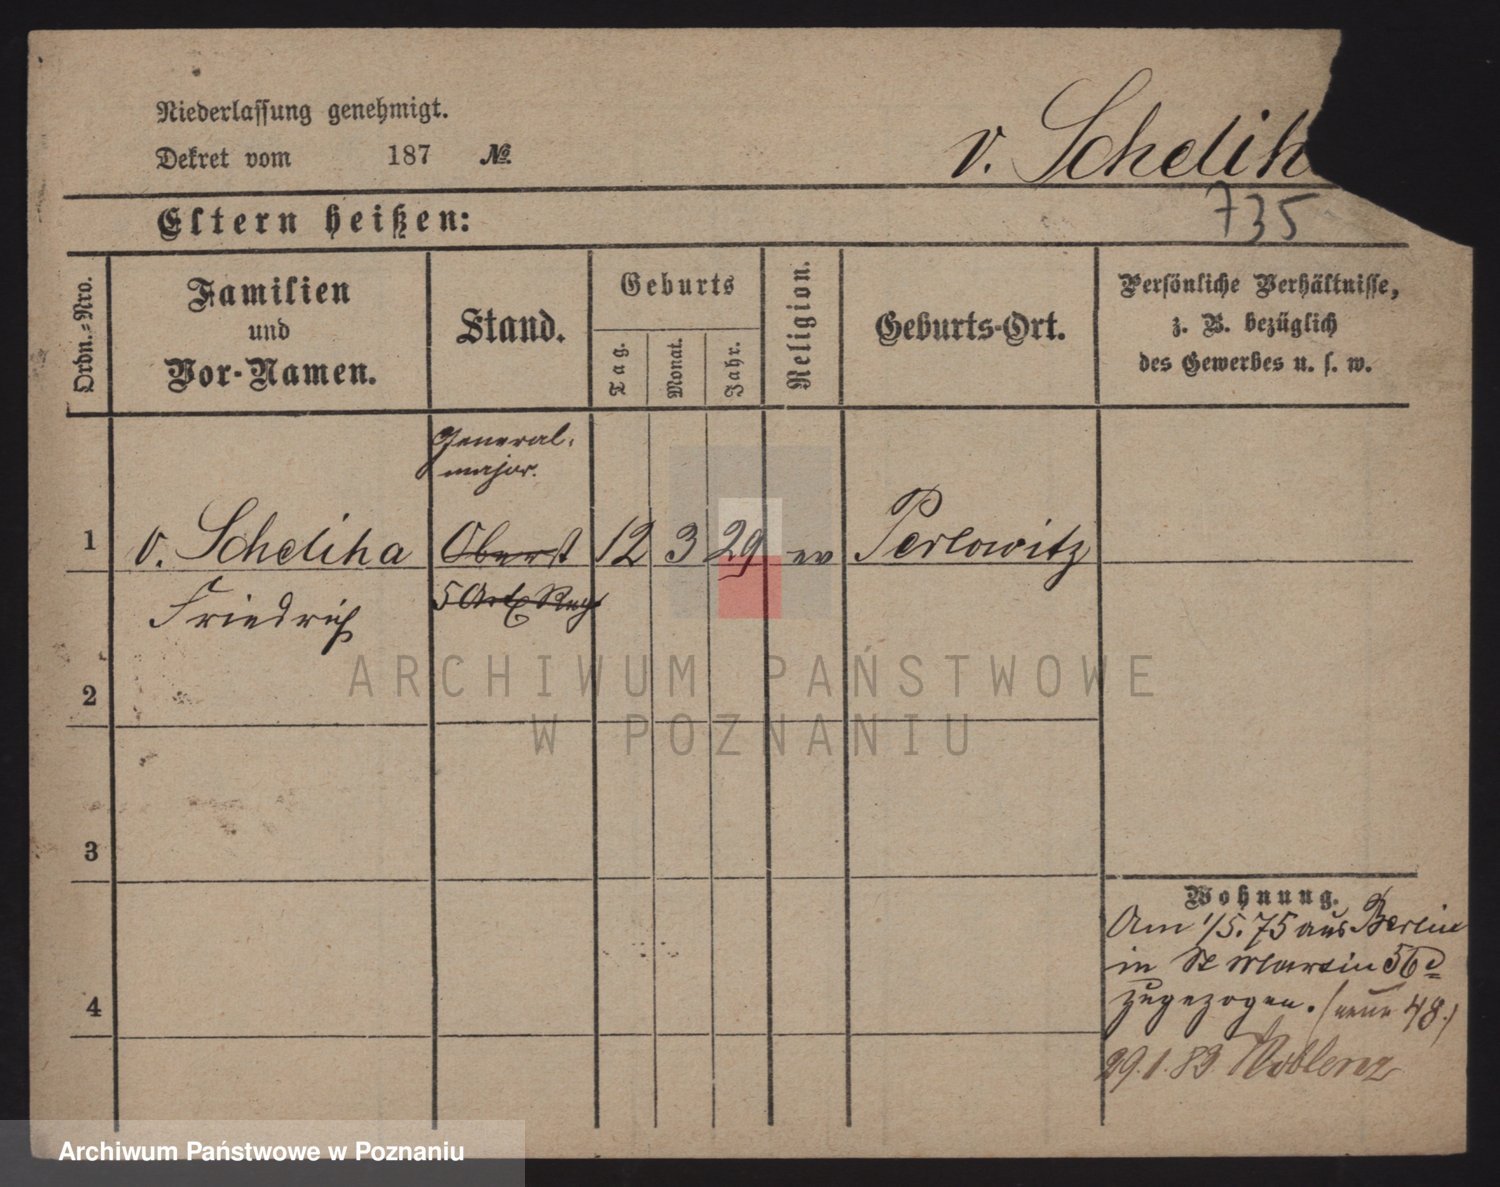 Niederlassung genehmigt.
Dekret vom 187 №
v. Schelih
735
Eltern heißen:
Ordn.-Nro.
Familien
und
Vor-Namen.
Stand.
Geburts
Tag.
Monat.
Jahr.
Religion.
Geburts-Ort.
Persönliche Verhältnisse,
z. B. bezüglich
des Gewerbes u. s. w.
General-
major.
1 v. Scheliha Oberst 12 3 29 ev Perlowitz
Friedrich 5 Art Regt
2
3
4
ARCHIWUM PAŃSTWOWE
W POZNANIU
Wohnung.
Am 1/5.75 aus Berlin
in St Martin 56
zugezogen. (neue 48.)
29.1.83 Koblenz
Archiwum Państwowe w Poznaniu